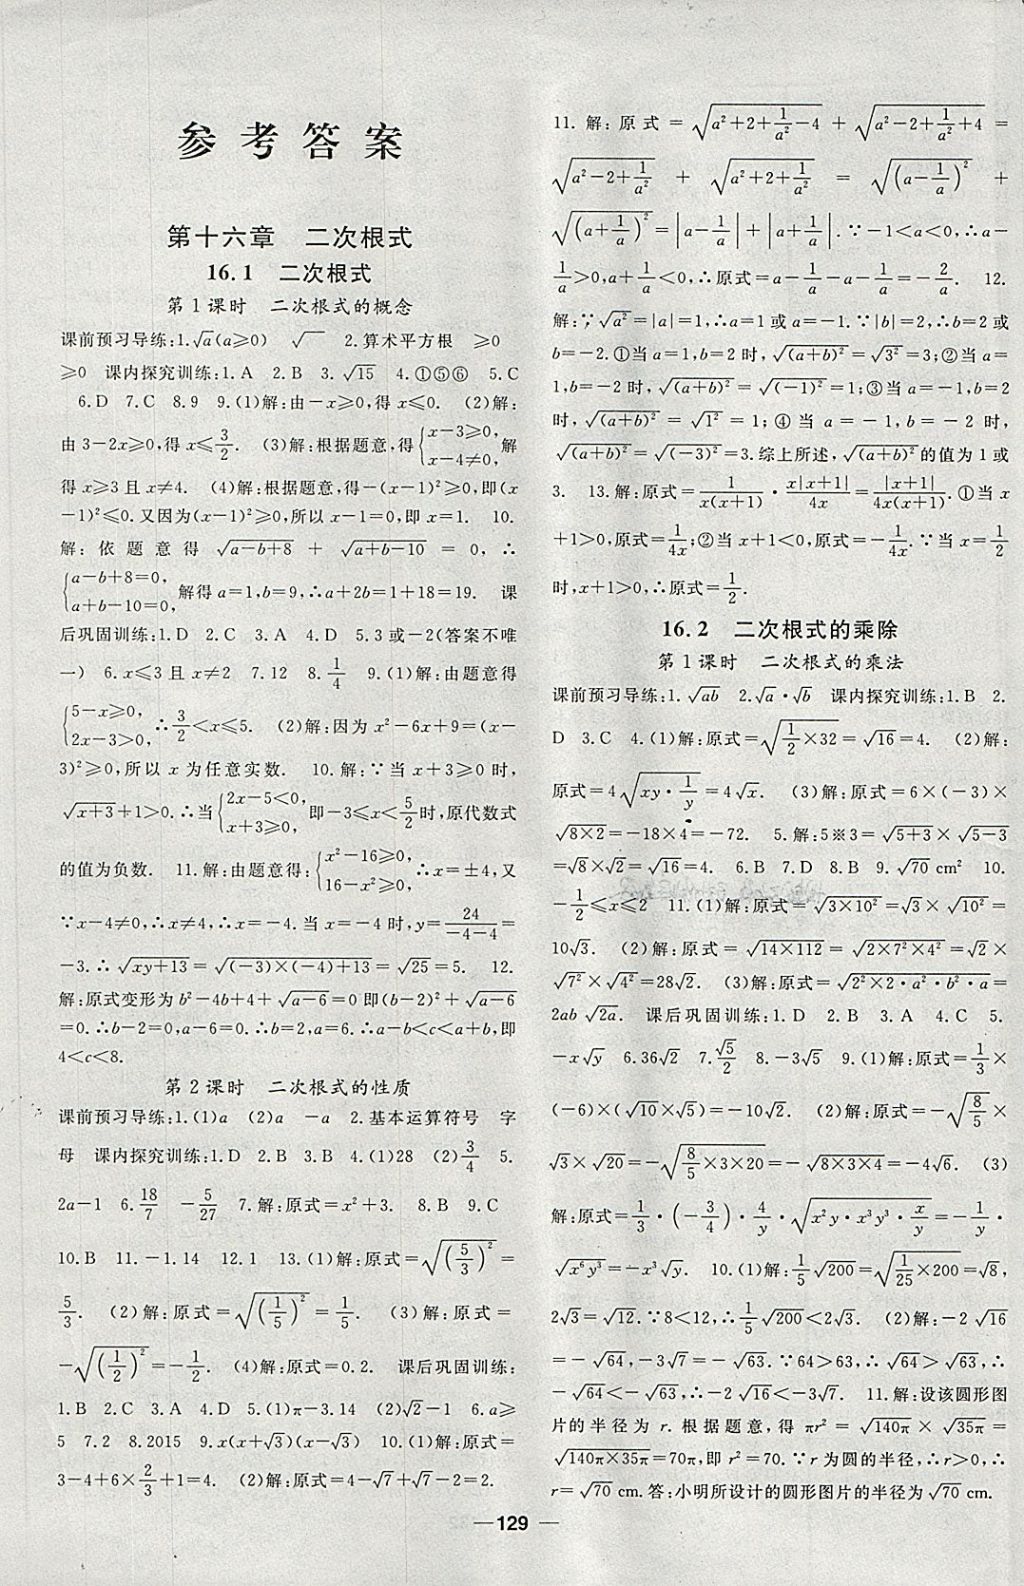 参考答案
第十六章　二次根式
16.1　二次根式
第1课时　二次根式的概念
课前预习导练:1.√a(a≥0)　√　2.算术平方根　≥0
≥0　课内探究训练:1.A　2.B　3.√15　4.①⑤⑥　5.C
6.D　7.C　8.9　9.(1)解:由-x≥0,得x≤0.　(2)解:
由3-2x≥0,得x≤3/2.　(3)解:根据题意,得{x-3≥0, x-4≠0,解
得x≥3且x≠4.　(4)解:根据题意,得-(x-1)²≥0,即(x
-1)²≤0.又因为(x-1)²≥0,所以x-1=0,即x=1.　10.
解:依题意得√(a-b+8)+√(a+b-10)=0,∴
{a-b+8=0, a+b-10=0,解得a=1,b=9,∴a+2b=1+18=19.　课
后巩固训练:1.D　2.C　3.A　4.D　5.3或-2(答案不唯
一)　6.x≤3且x≠2　7.12　8.1/4　9.(1)解:由题意得
{5-x≥0, 2x-3>0,∴3/2<x≤5.　(2)解:因为x²-6x+9=(x-
3)²≥0,所以x为任意实数.　10.解:∵当x+3≥0时,
√(x+3)+1>0.∴当{2x-5<0, x+3≥0,即-3≤x<5/2时,原代数式
的值为负数.　11.解:由题意得:{x²-16≥0, 16-x²≥0,∴x=±4,又
∵x-4≠0,∴x≠4,∴x=-4.当x=-4时,y=24/(-4-4)=
-3.∴√(xy+13)=√((-3)×(-4)+13)=√25=5.　12.
解:原式变形为b²-4b+4+√(a-6)=0即(b-2)²+√(a-6)
=0.∴b-2=0,a-6=0.∴b=2,a=6.∴a-b<c<a+b,即
4<c<8.
第2课时　二次根式的性质
课前预习导练:1.(1)a　(2)a　-a　2.基本运算符号　字
母　课内探究训练:1.D　2.B　3.B　4.(1)28　(2)3/4　5.
2a-1　6.18/7　-5/27　7.解:原式=x²+3.　8.B　9.C
10.B　11.-1.14　12.1　13.(1)解:原式=√((5/3)²)=
5/3.　(2)解:原式=√((1/5)²)=1/5.　(3)解:原式=
-√((1/2)²)=-1/2.　(4)解:原式=0.2.　课后巩固训练:
1.B　2.C　3.A　4.D　5.(1)π-3.14　(2)√2-1　6.a≥
5　7.2　8.2015　9.x(x+√3)(x-√3)　10.(1)解:原式=
3-4+6×2/3+1=4.　(2)解:原式=4-√7+√7-2=2.
11.解:原式=√(a²+2+1/a²-4)+√(a²-2+1/a²+4)=
√(a²-2+1/a²)+√(a²+2+1/a²)=√((a-1/a)²)+
√((a+1/a)²)=|a-1/a|+|a+1/a|.∵-1<a<0,∴a-
1/a>0,a+1/a<0,∴原式=a-1/a-a-1/a=-2/a.　12.
解:∵√a²=|a|=1,∴a=1或a=-1.∵|b|=2,∴b=2或
b=-2.①当a=1,b=2时,√((a+b)²)=√3²=3;②当a=
1,b=-2时,√((a+b)²)=√((-1)²)=1;③当a=-1,b=2
时,√((a+b)²)=√1²=1;④当a=-1,b=-2时,
√((a+b)²)=√((-3)²)=3.综上所述,√((a+b)²)的值为1或
3.　13.解:原式=1/(x(x+1))·x|x+1|/4x=|x+1|/(4x(x+1)).①当x
+1>0,原式=1/4x;②当x+1<0,原式=-1/4x.∵当x=1/2
时,x+1>0,∴原式=1/2.
16.2　二次根式的乘除
第1课时　二次根式的乘法
课前预习导练:1.√ab　2.√a·√b　课内探究训练:1.B　2.
D　3.C　4.(1)解:原式=√(1/2×32)=√16=4.　(2)解:
原式=4√(xy·1/y)=4√x.　(3)解:原式=6×(-3)×
√(8×2)=-18×4=-72.　5.解:5※3=√(5+3)×√(5-3)
=√8×√2=√16=4.　6.B　7.D　8.B　9.√70 cm²　10.
-1/2≤x≤2　11.(1)解:原式=√(3×10²)=√3×√10²=
10√3.　(2)解:原式=√(14×112)=√(2×7²×4²)=√2×
√7²×√4²=28√2.　(3)解:原式=√(2²×2·a²·b²·a)=
2ab√2a.　课后巩固训练:1.D　2.B　3.A　4.C　5.
-x√y　6.36√2　7.√5/2　8.-3√5　9.(1)解:原式=1/3×
(-6)×(√10×√5)=-10√2.　(2)解:原式=-√(8/5)×
√3×√20=-√(8/5×3×20)=-√(8×3×4)=-4√6.　(3)
解:原式=1/3·(-3/4)·4/y·√(x²y·x³y³·x/y)=-1/y·
√(x⁶y³)=-x³√y.　10.(1)解:1/5√200=√(1/25×200)=√8,
2√3=√12.∵8<12,∴1/5√200<2√3.　(2)解:-2√16
=-√64,-3√7=-√63.∵64>63,∴√64>√63,∴
-√64<-√63,∴-2√16<-3√7.　11.解:设该圆形图
片的半径为r.根据题意,得πr²=√140π×√35π=
√(140π×35π)=70π,即r²=70.∵r为圆的半径,∴r>0,∴
r=√70 cm.答:小明所设计的圆形图片的半径为√70 cm.
— 129 —